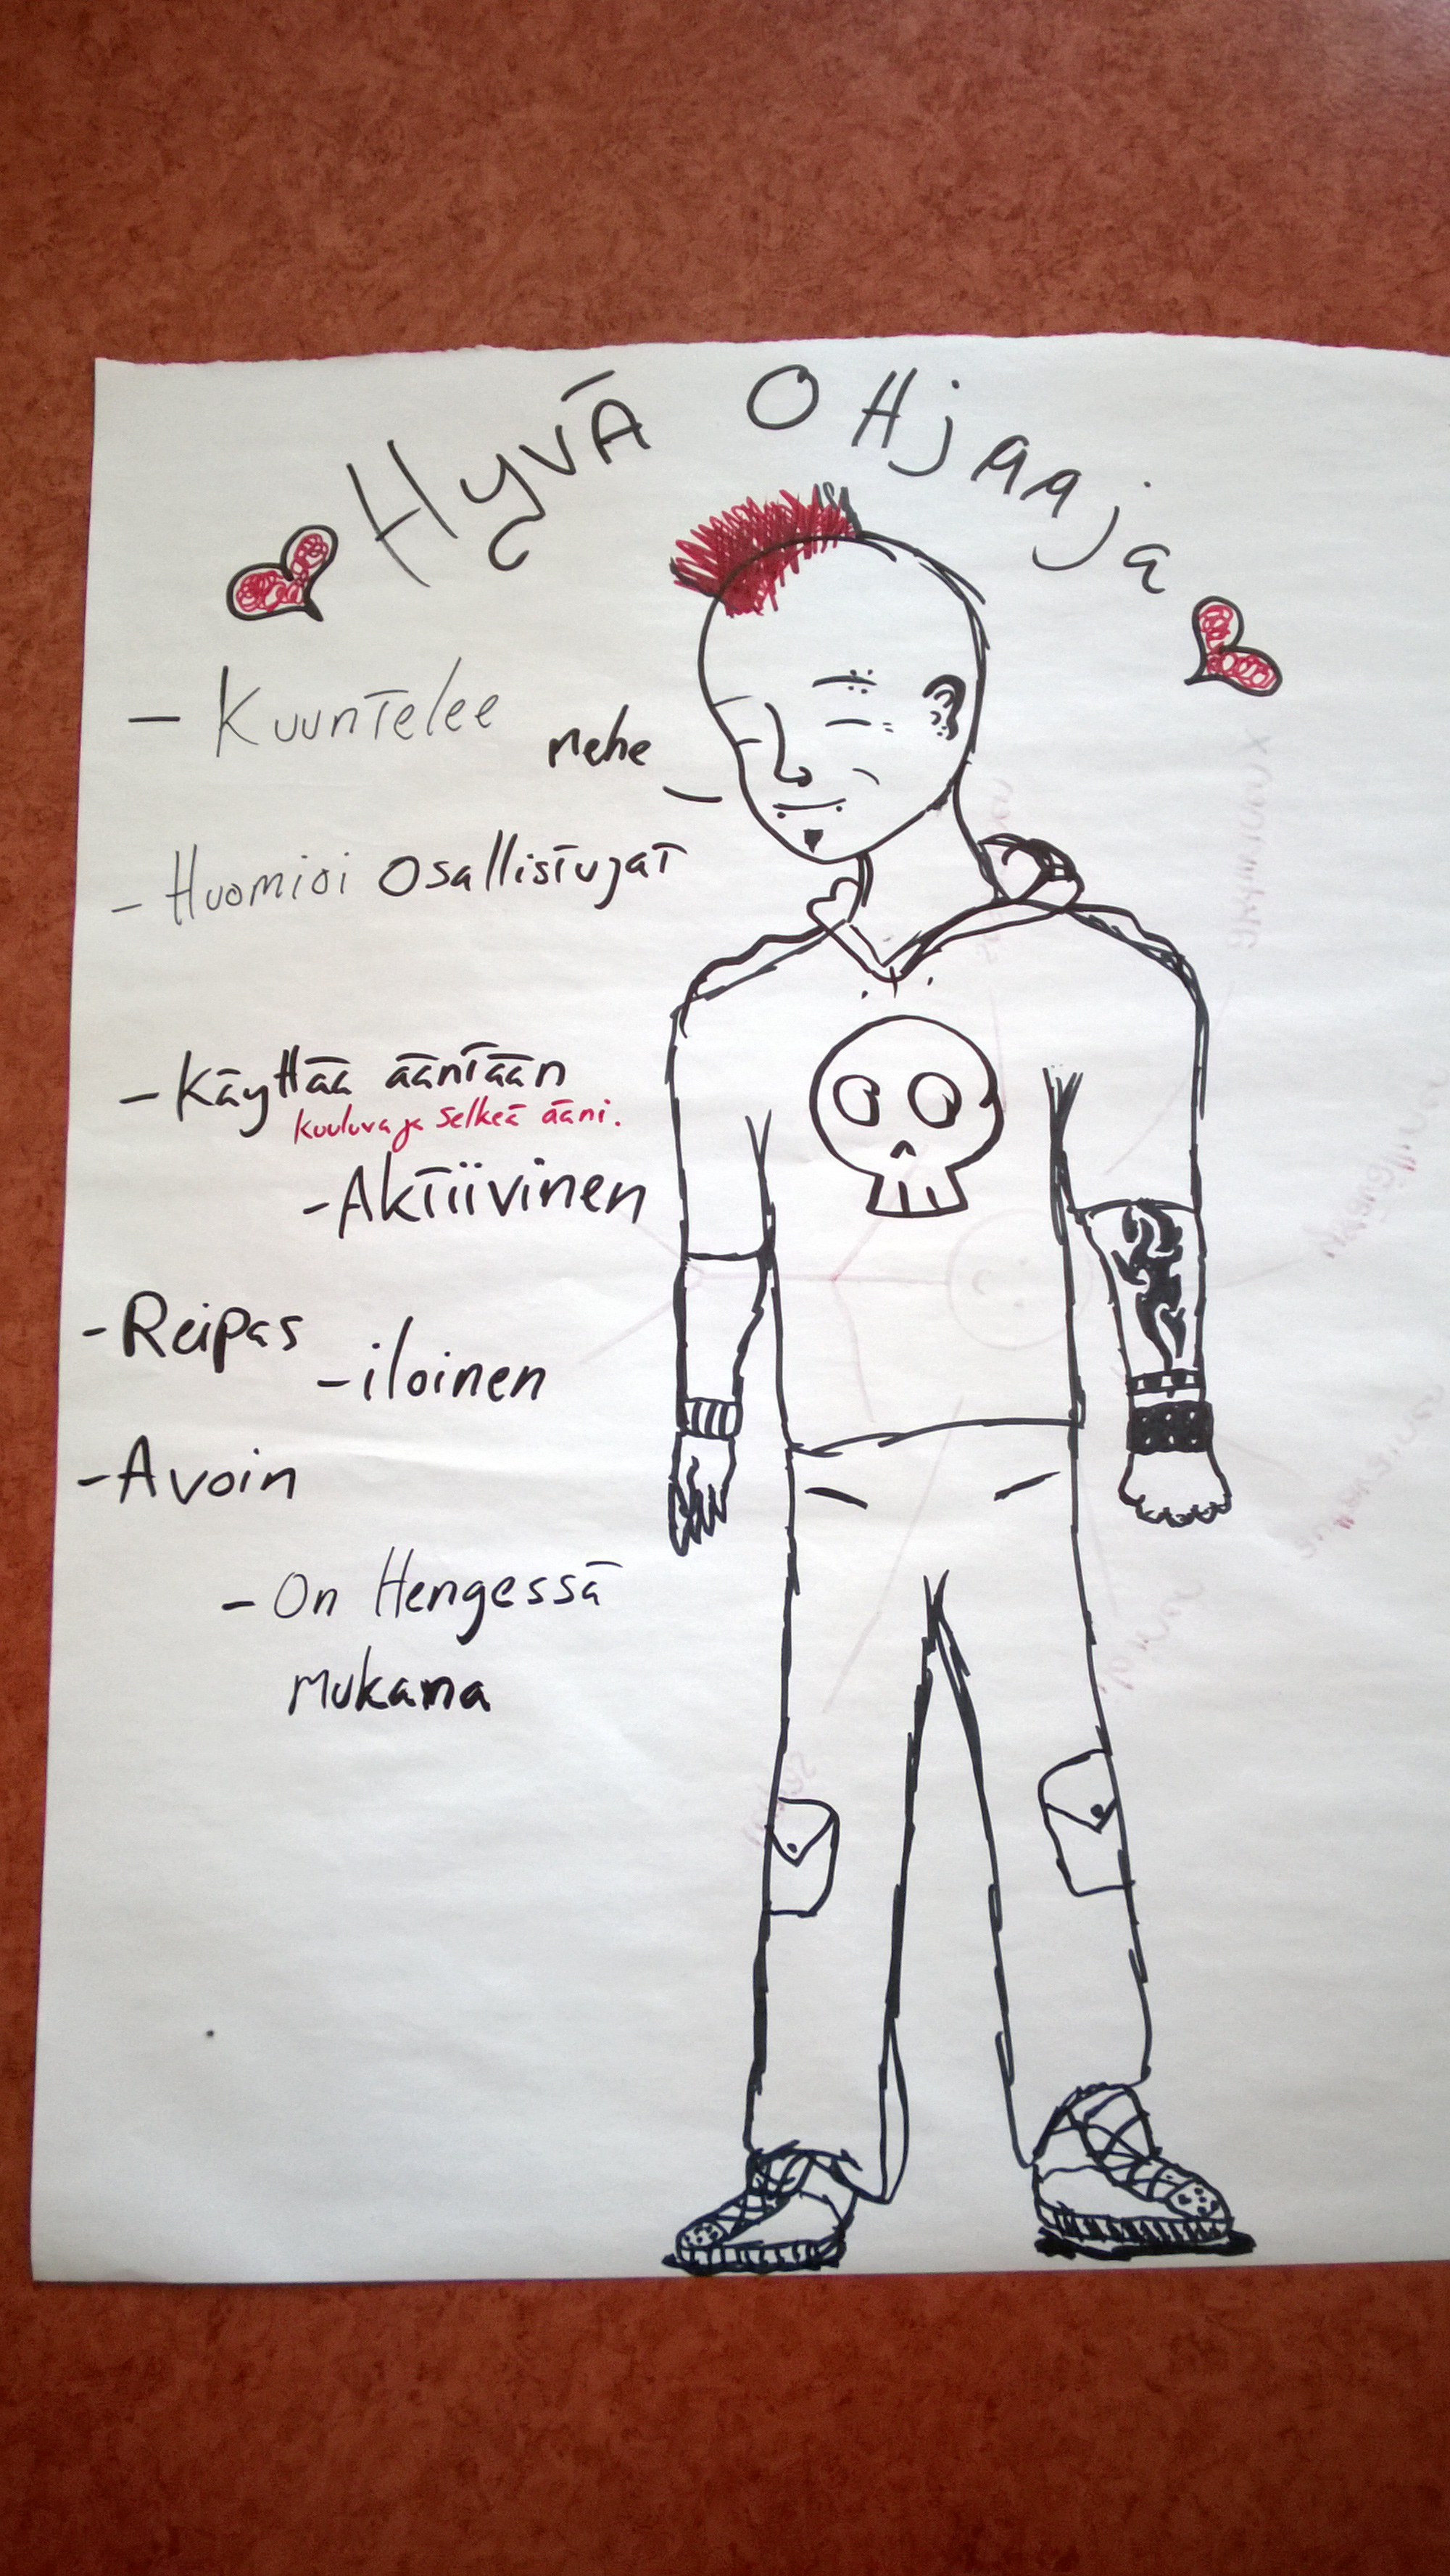 HyVÄ OHjaaja
- Kuuntelee
nehe
- Huomioi Osallistujat
- Käyttää ääntään
kuuluva ja selkeä ääni.
- Aktiivinen
- Reipas
- iloinen
- Avoin
- On Hengessä
mukana